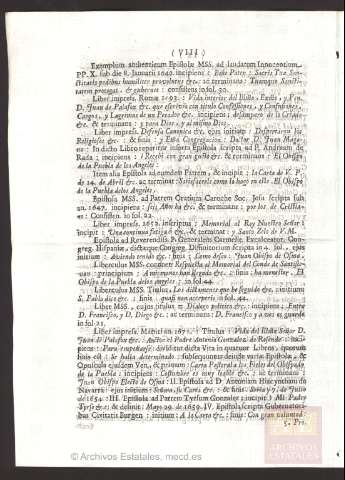 ( VIII )
Exemplum authenticum Epistolæ MSS. ad laudatum Innocentium
PP. X. sub die 8. Januarii 1649. incipiens : Beate Pater : Sacris Tua San-
ctitatis pedibus humiliter provolutus &c. ac terminans :
precor, & gubernet : consistens in fol. 50.
Liber impress. Romæ 1693. : Vida interior del Illmo, Excmo, y Ven.
D. Juan de Palafox &c. que escrivió con titulo Confessiones, y Confusiones,
Cargos, y Lagrimas de un Pecador &c. incipiens : al amparo de la Criaja
&c. & terminans : y para Dios, y al mismo Dios.
Liber impress. Defensa Canonica &c. ejus initium :
Religiosa &c. : & finis : y Esta Congregacion : Doctor D. Juan Magano:
In dicto Libro reperitur inserta Epistola scripta ad P. Andream de
Rada : incipiens : Recebi con gran gusto &c. & terminans : El Obispo
de la Puebla de los Angeles :
Item alia Epistola ad eumdem Patrem, & incipit : la Carta de V. P.
de 14. de Abril &c. ac terminat : Satisfacerlo como lo hago en este. El Obispo
de la Puebla de los Angeles.
Epistola MSS. ad Patrem Oratium Caroche Soc. Jesu scripta sub
an. 1647. incipiens : Año ha &c. & terminans : por los de Christian-
os. Consistens fol. 22.
Liber impress. 1652. inscriptus : Memorial al Rey Nuestro Señor :
incipit : Una continua fatiga &c., & terminat : y Santo Zelo de V. M.
Epistola ad Reverendiss. P. Generalem Carmelit. Excalceator. Con-
greg. Hispaniæ, dictæque Congreg. Difinitorium scripta in 4. fol., ejus
initium : deviendo siendo &c. : finis : Como desea : Juan Obispo de Osma.
Liberculus MSS. continens Respuesta al Memorial del Conde de Santiste-
van : principium : A mis manos han llegado &c. : finis : ha menester, El
Obispo de la Puebla de los Angeles ; in fol. 44.
Liberculus MSS. Titulus, Los dictamenes que he seguido &c. initium :
S. Pablo dice &c. : finis : quasi non acceperis, in fol. 42.
Liber MSS., cujus titulus : Dialogo politico &c. : incipiens, Entre
D. Francisco, y D. Diego &c. : ac terminans : D. Francisco y a mi es, guarde
in fol. 21.
Liber impress. Matriti an. 1671. : Titulus : Vida del Illmo Señor D.
Juan de Palafox &c. : Author el Padre Antonio Gonzalez de Rosende : in-
cipit : Para empeñarse: dividitur dicta Vita in quatuor Libros, quorum
finis est : se halla determinado : subsequuntur deinde variæ Epistolæ, &
Opuscula ejusdem Ven., & primum : Carta Pastoral a los Fieles del Obispado
de la Puebla : incipiens : Costumbre es muy loable &c. : ac terminans :
Juan Obispo Electo de Osma : II. Epistola ad D. Antonium Hinestrosam de
Navares : ejus initium : Señora, su Carta &c. : & finis : Soria y 7. de Junio
de 1654. : III. Epistola ad Patrem Tyrsum Gonzalez : incipit : Mi Padre
Tyrso &c. : & desinit : Mayo 29. de 1659. IV. Epistola scripta Gubernatori-
bus Civitatis Burgen : initium : A la Carta &c. : finis : Con gran voluntad :
5. Pro.
ARCHIVOS
ESTATALES
© Archivos Estatales, mecd.es